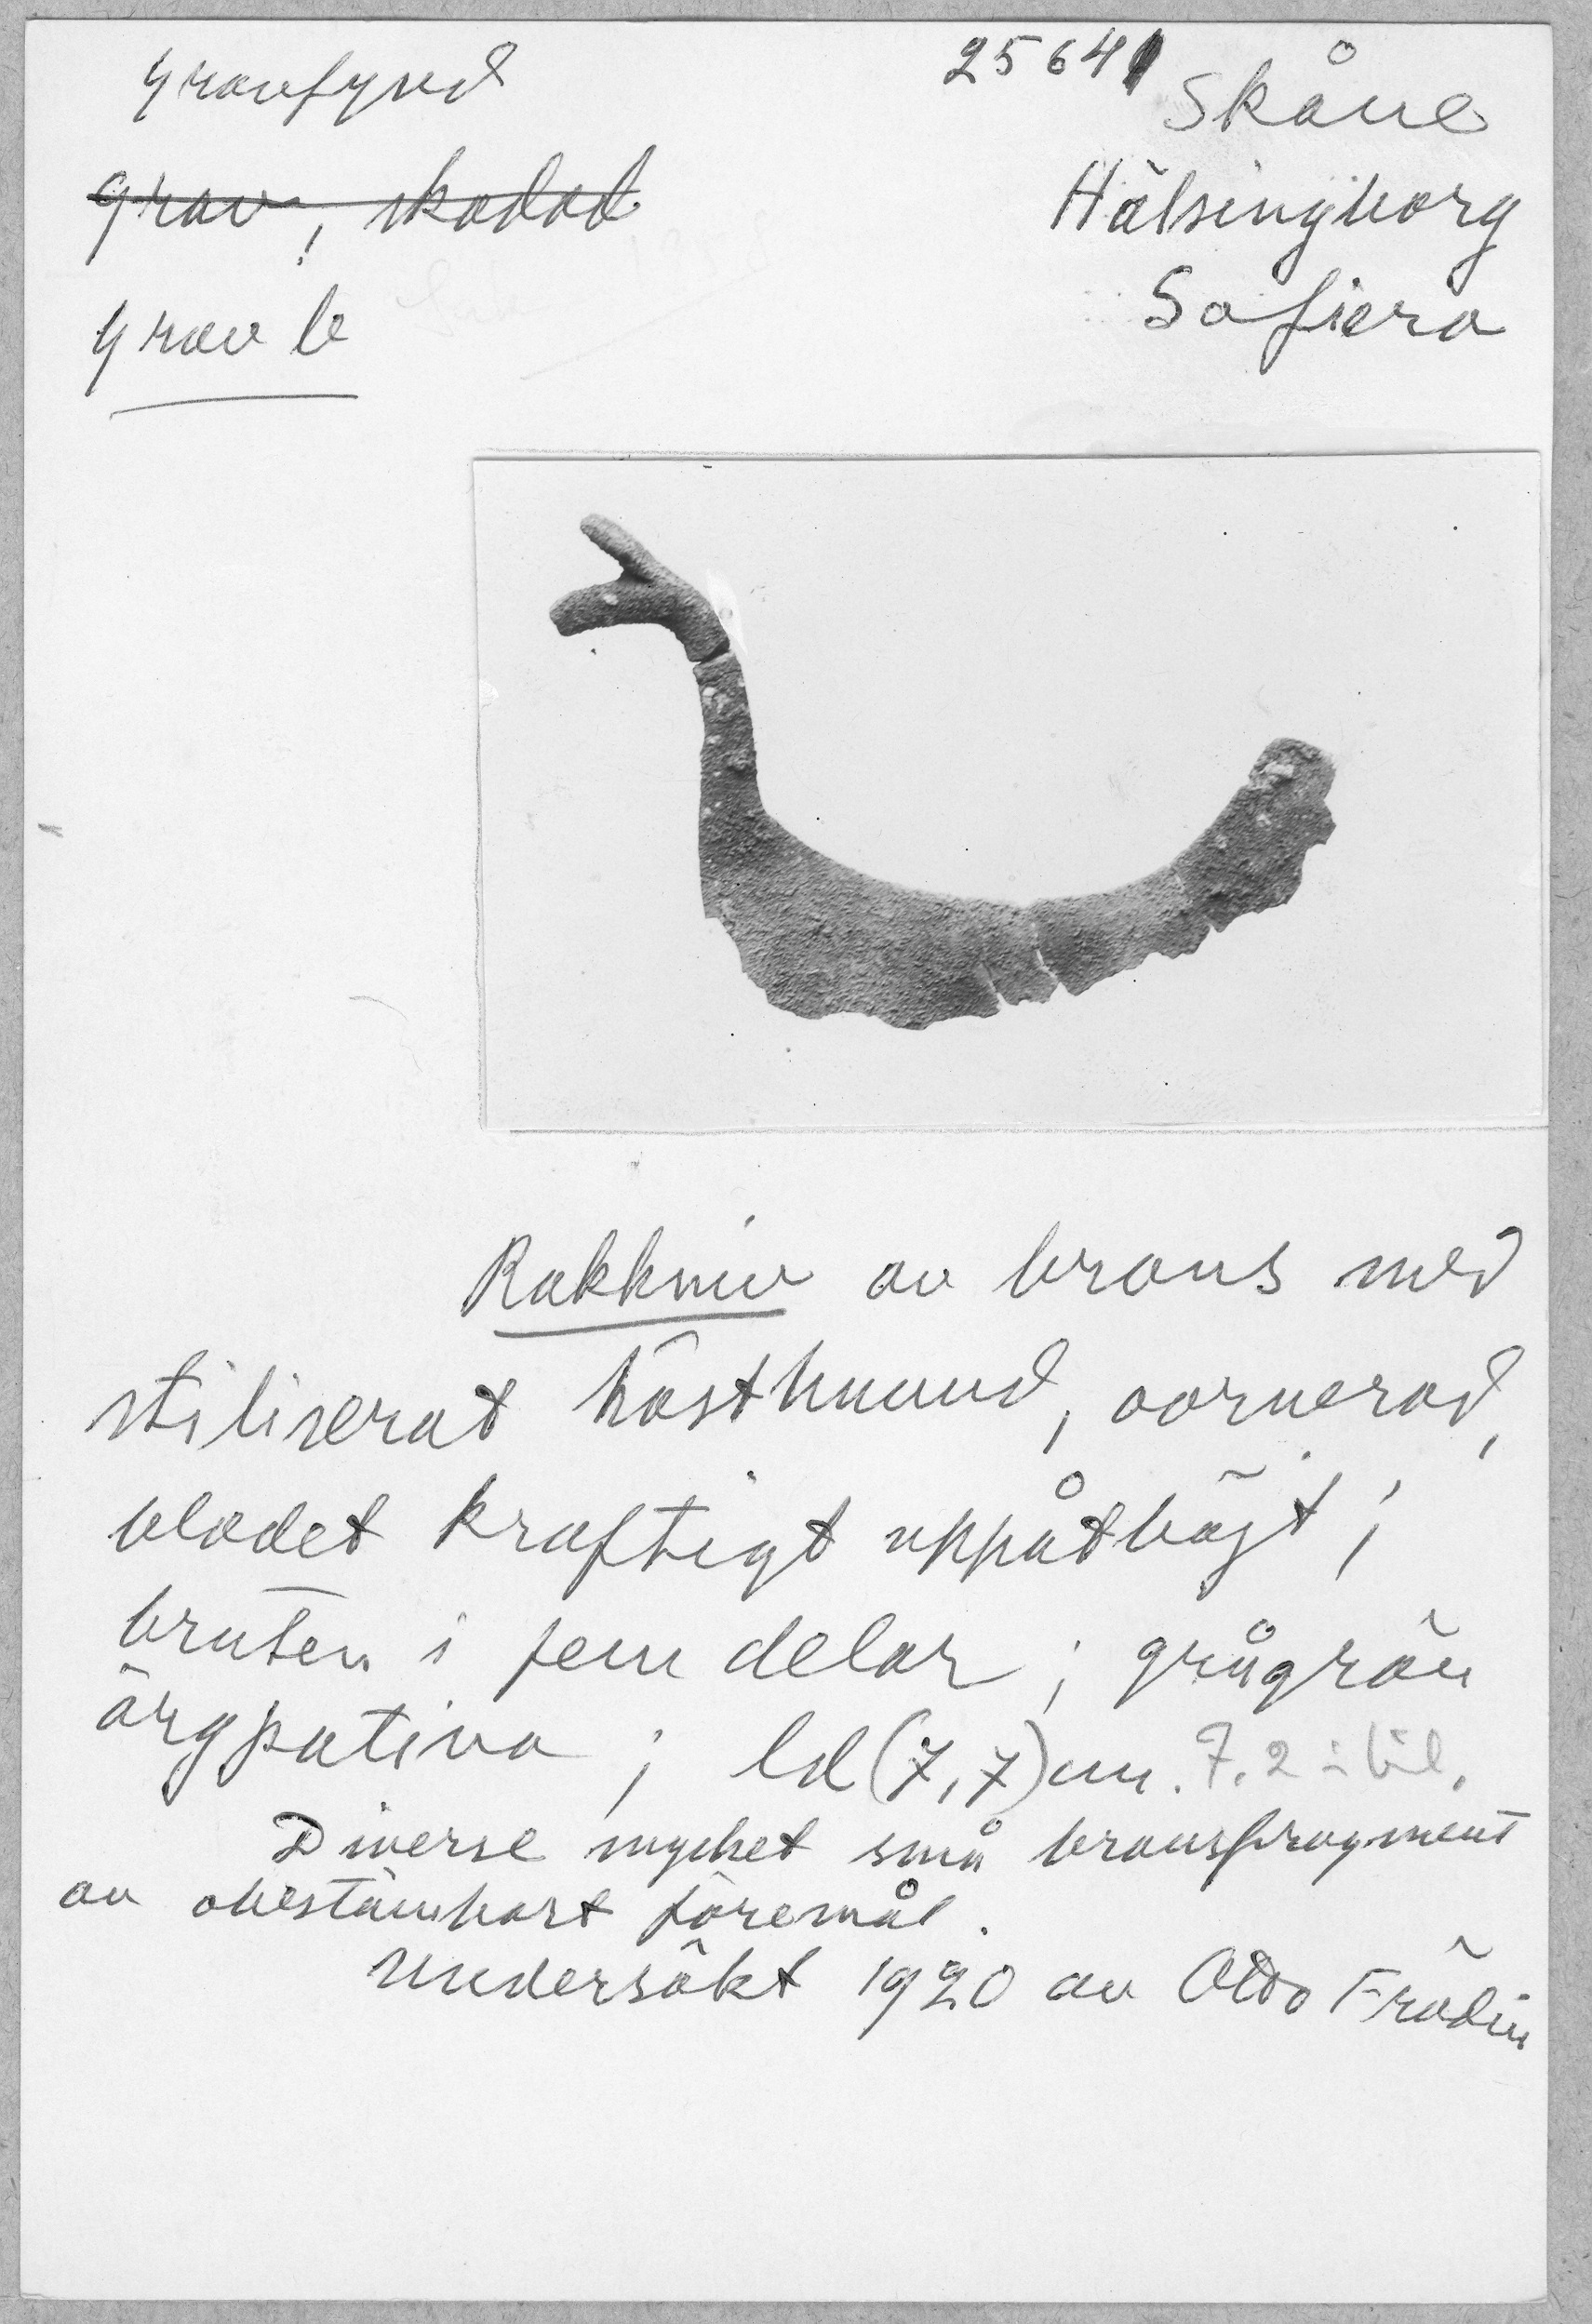 Gravfynd
25641
Skåne
grav, skadad
Hälsingborg
Grav b
Sofiero
Rakkniv av brons med
stiliserat hästhuvud, oornerad,
bladet kraftigt uppåtböjt;
bruten i fem delar; grågrön
ärgpatina; ld (7,7) cm. 7,2 i bil.
Diverse mycket små bronsfragment
av obestämbart föremål.
Undersökt 1920 av Otto Frödin